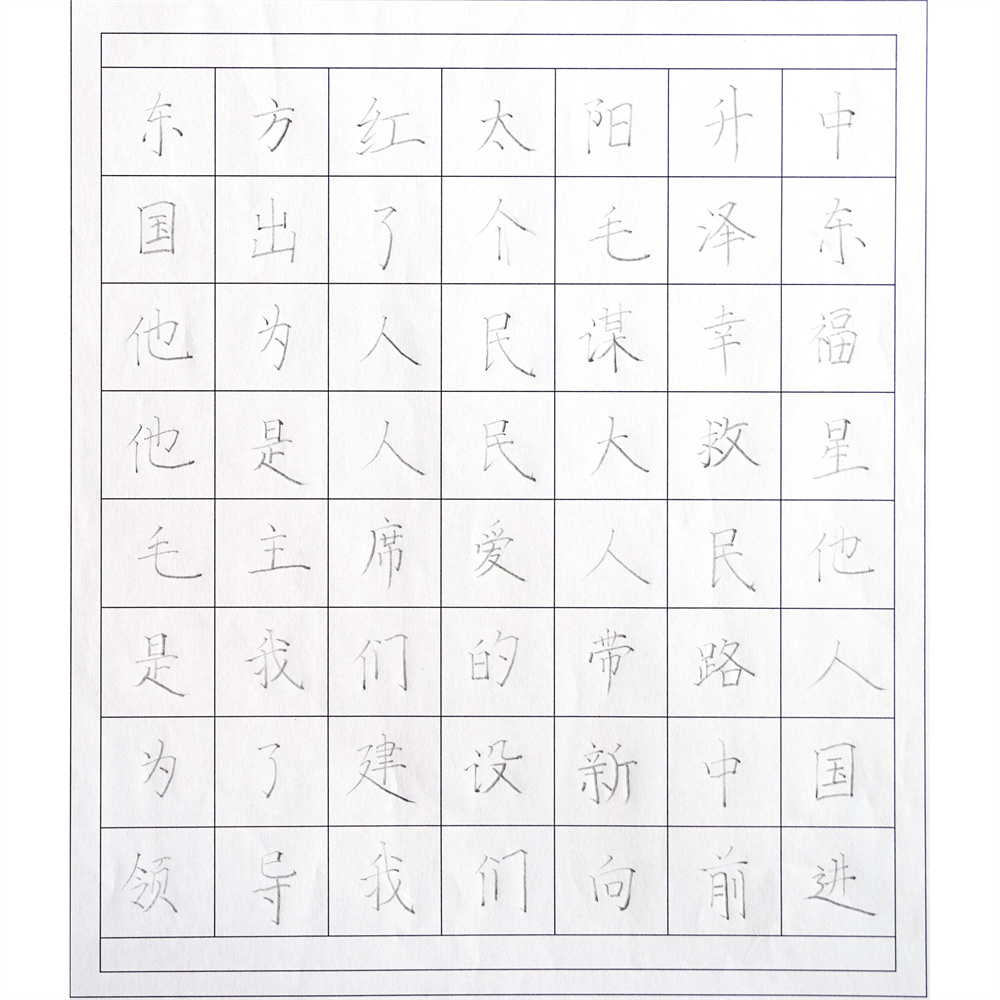 东方红太阳升中
国出了个毛泽东
他为人民谋幸福
他是人民大救星
毛主席爱人民他
是我们的带路人
为了建设新中国
领导我们向前进